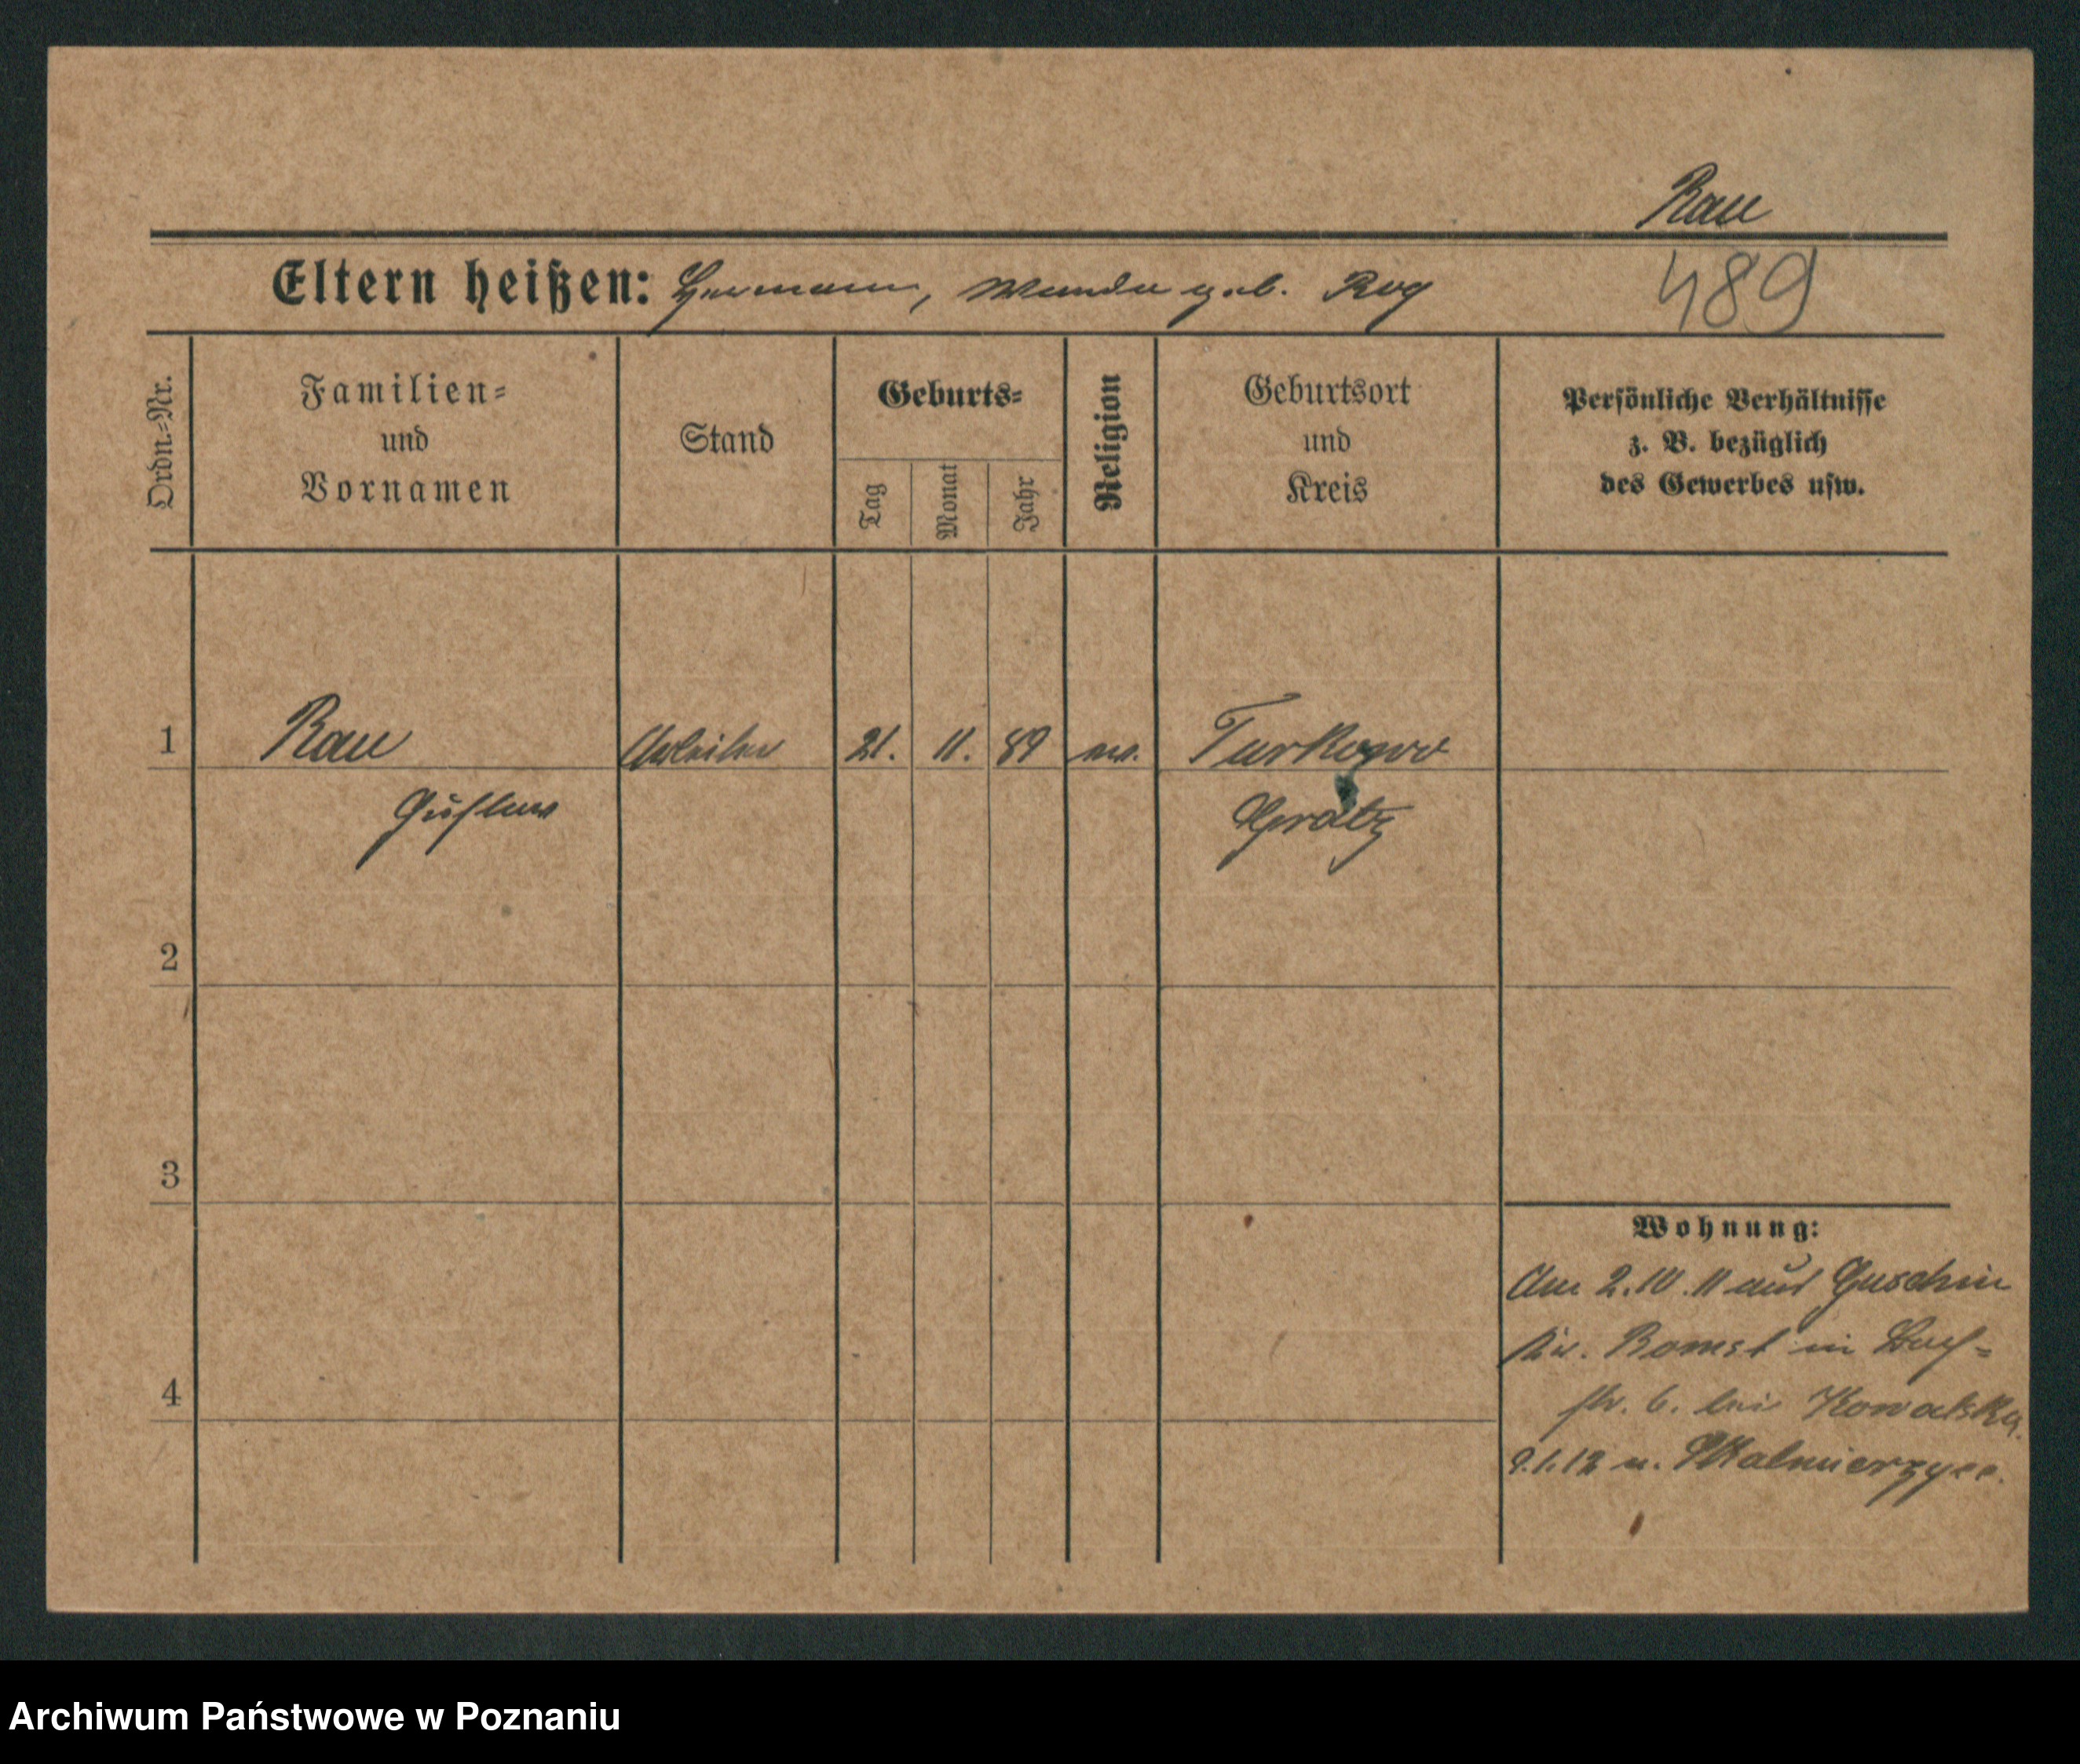 Rau
Eltern heißen: Hermann, Wanda geb. Rog
489
Ordn.-Nr.
Familien-
und
Vornamen
Stand
Geburts-
Tag
Monat
Jahr
Religion
Geburtsort
und
Kreis
Persönliche Verhältnisse
z. B. bezüglich
des Gewerbes usw.
1 Rau Arbeiter 21. 11. 89 ev. Turkowo
Gustav Grätz
2
3
Wohnung:
Am 2.10.11 aus Guschin
Kr. Bomst in
str. 6. bei Kowalska
9.1.12 n. Skalmierzyce.
4
Archiwum Państwowe w Poznaniu